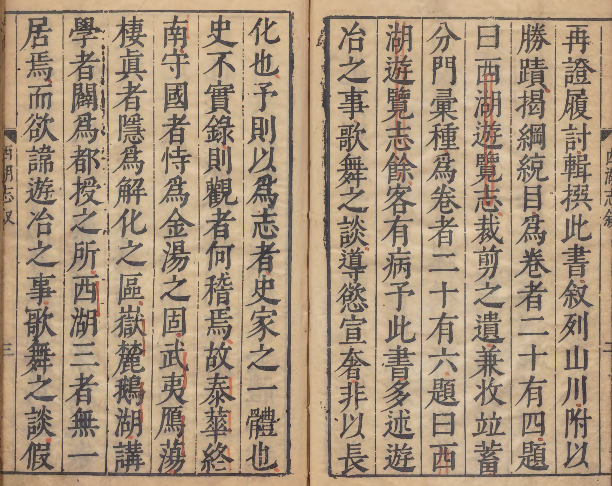 再證履討輯撰此書敘列山川附以
勝蹟揭綱統目爲卷者二十有四題
曰西湖遊覽志裁剪之遺兼收並蓄
分門彙種爲卷者二十有六題曰西
湖遊覽志餘客有病予此書多述遊
冶之事歌舞之談導慾宣奢非以長
化也予則以爲志者史家之一體也
史不實錄則觀者何稽焉故泰華終
南守國者恃爲金湯之固武夷鴈蕩
棲眞者隱爲解化之區嶽麓鵝湖講
學者闢爲都授之所西湖三者無一
居焉而欲諱遊冶之事歌舞之談假
西湖志叙
三